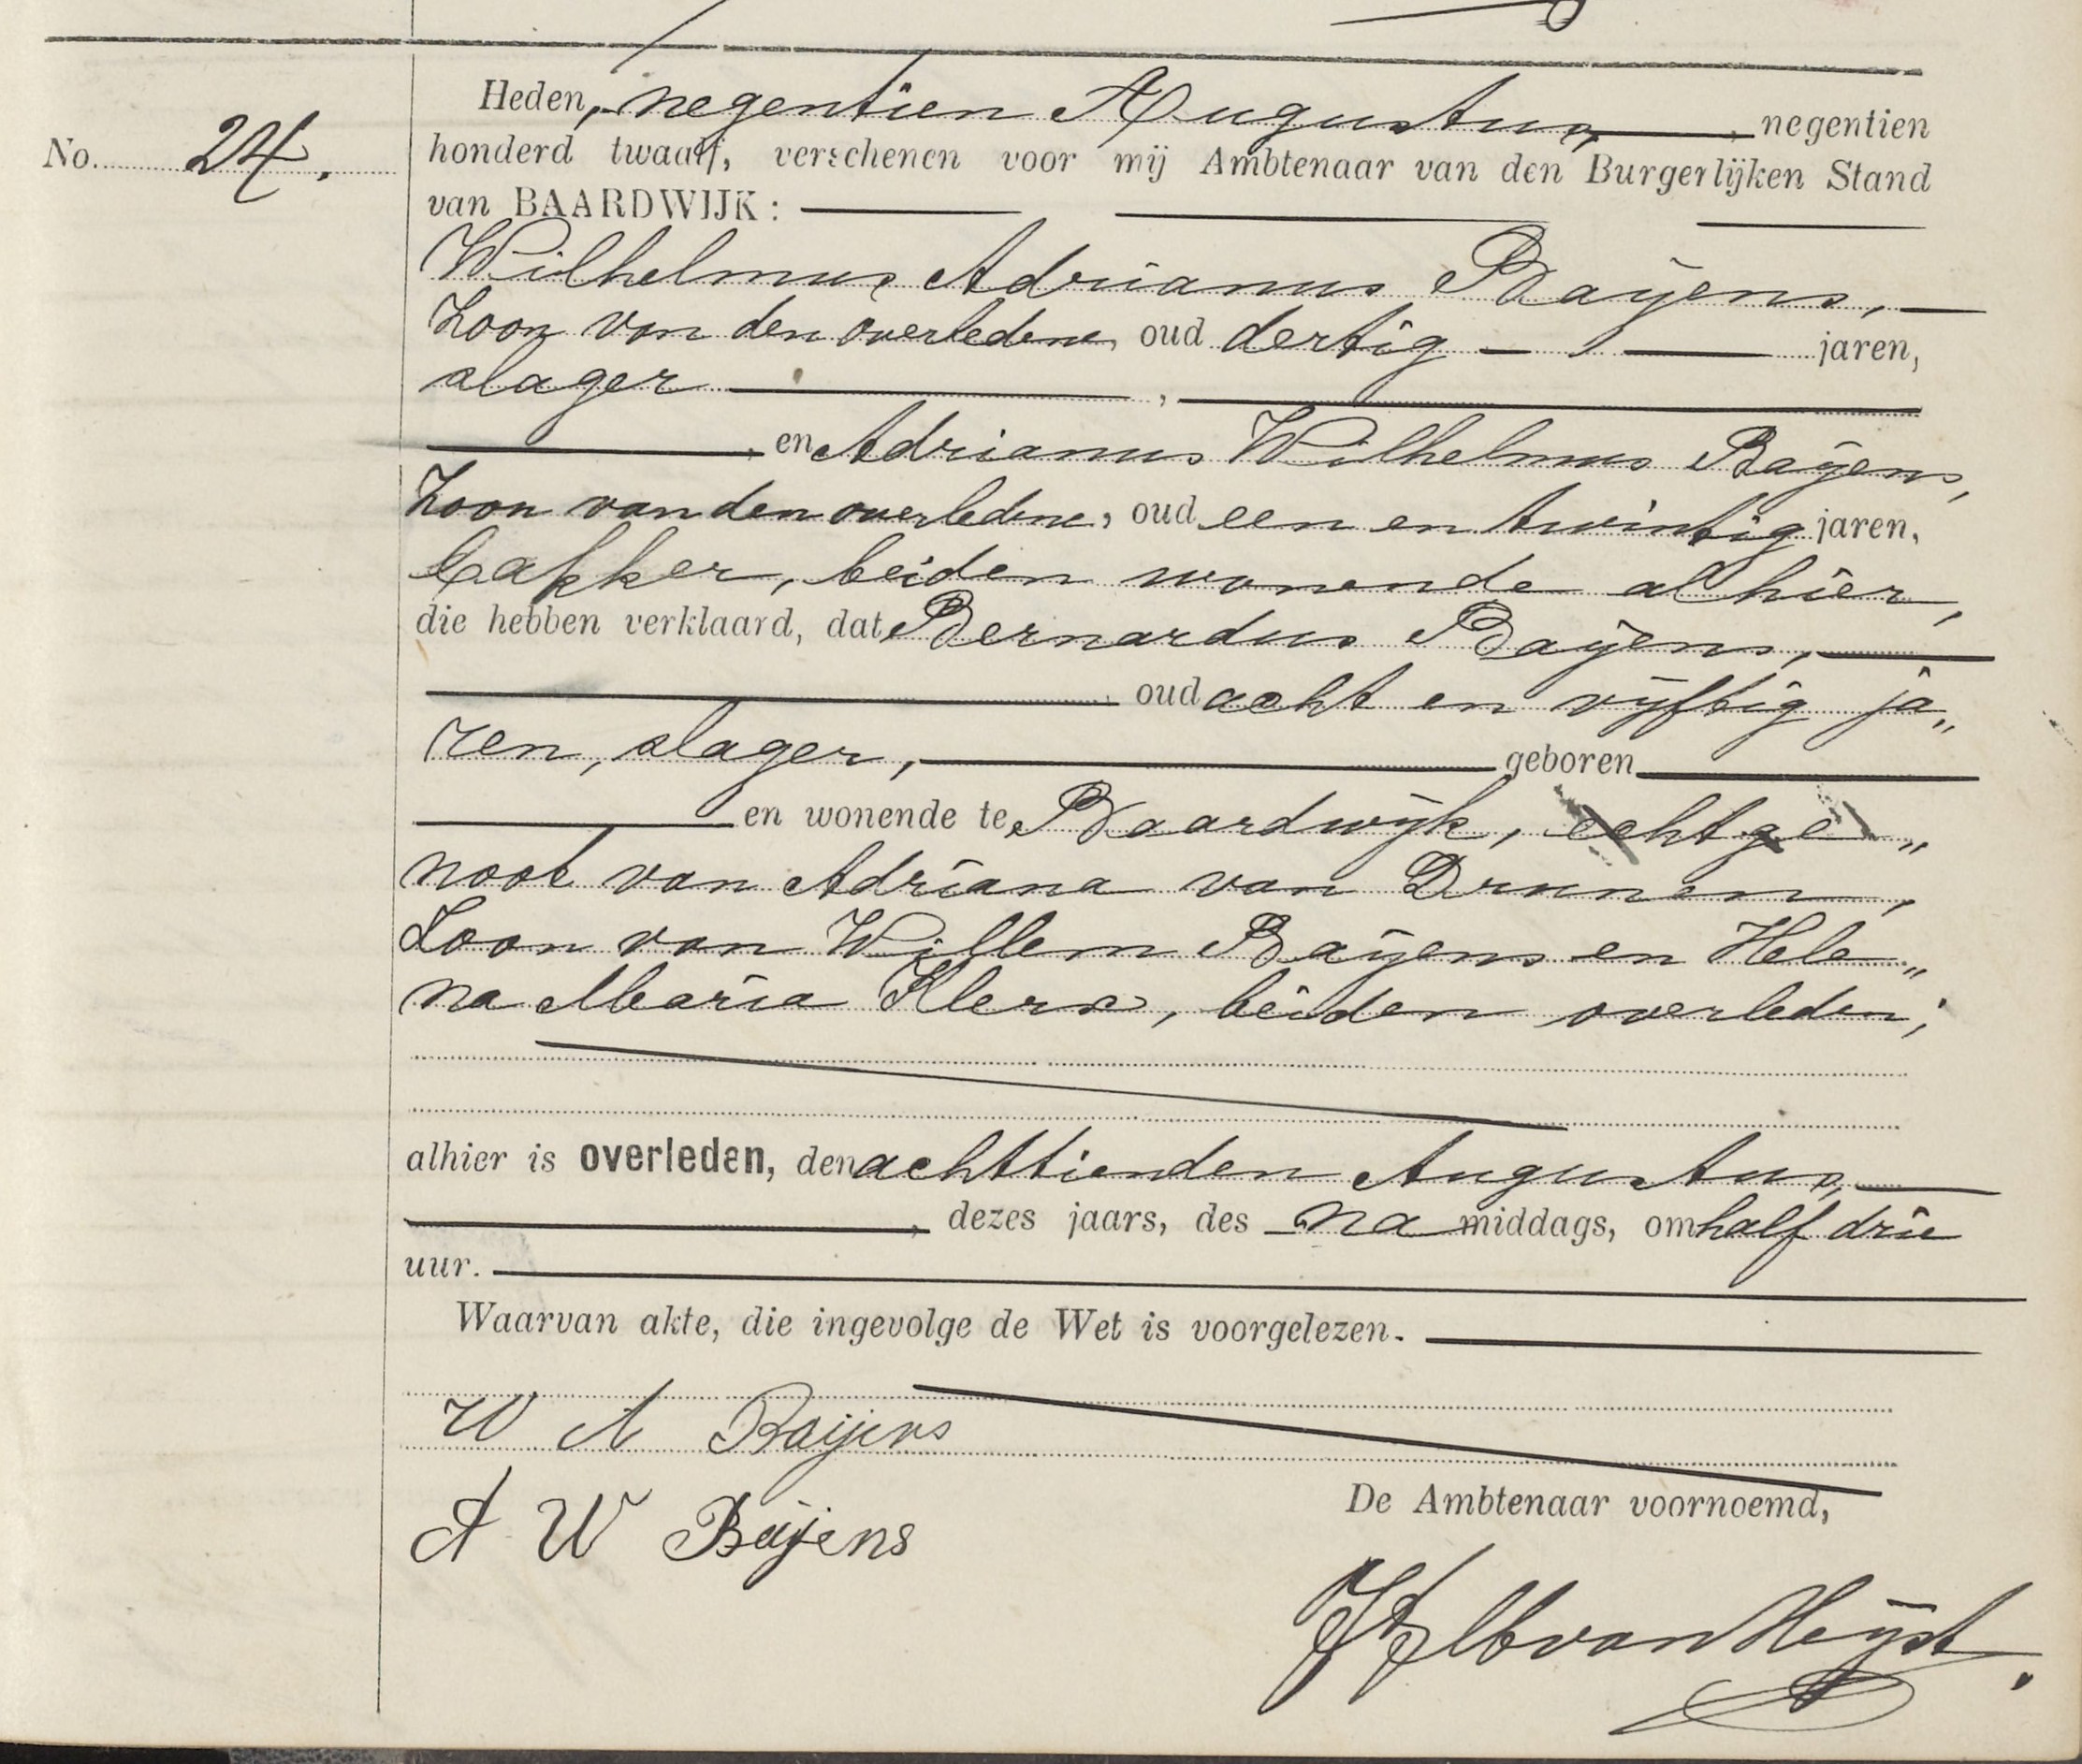 No. 24.
Heden, negentien Augustus, negentien
honderd twaalf, verschenen voor mij Ambtenaar van den Burgerlijken Stand
van BAARDWIJK:
Wilhelmus Adrianus Bayens,
Zoon van den overledene, oud dertig jaren,
slager,
, en Adrianus Wilhelmus Bayens,
Zoon van den overledene, oud een en twintig jaren,
bakker, beiden wonende alhier,
die hebben verklaard, dat Bernardus Bayens,
, oud acht en vijftig ja„
ren, slager, geboren
en wonende te Baardwijk, echtge„
noot van Adriana van Drunen,
Zoon van Willem Bayens en Hele„
na Maria Klerx, beiden overleden;
alhier is overleden, den achttienden Augustus,
, dezes jaars, des na middags, om half drie
uur.
Waarvan akte, die ingevolge de Wet is voorgelezen.
W A Baijens
A W Baijens
De Ambtenaar voornoemd,
van Heijst